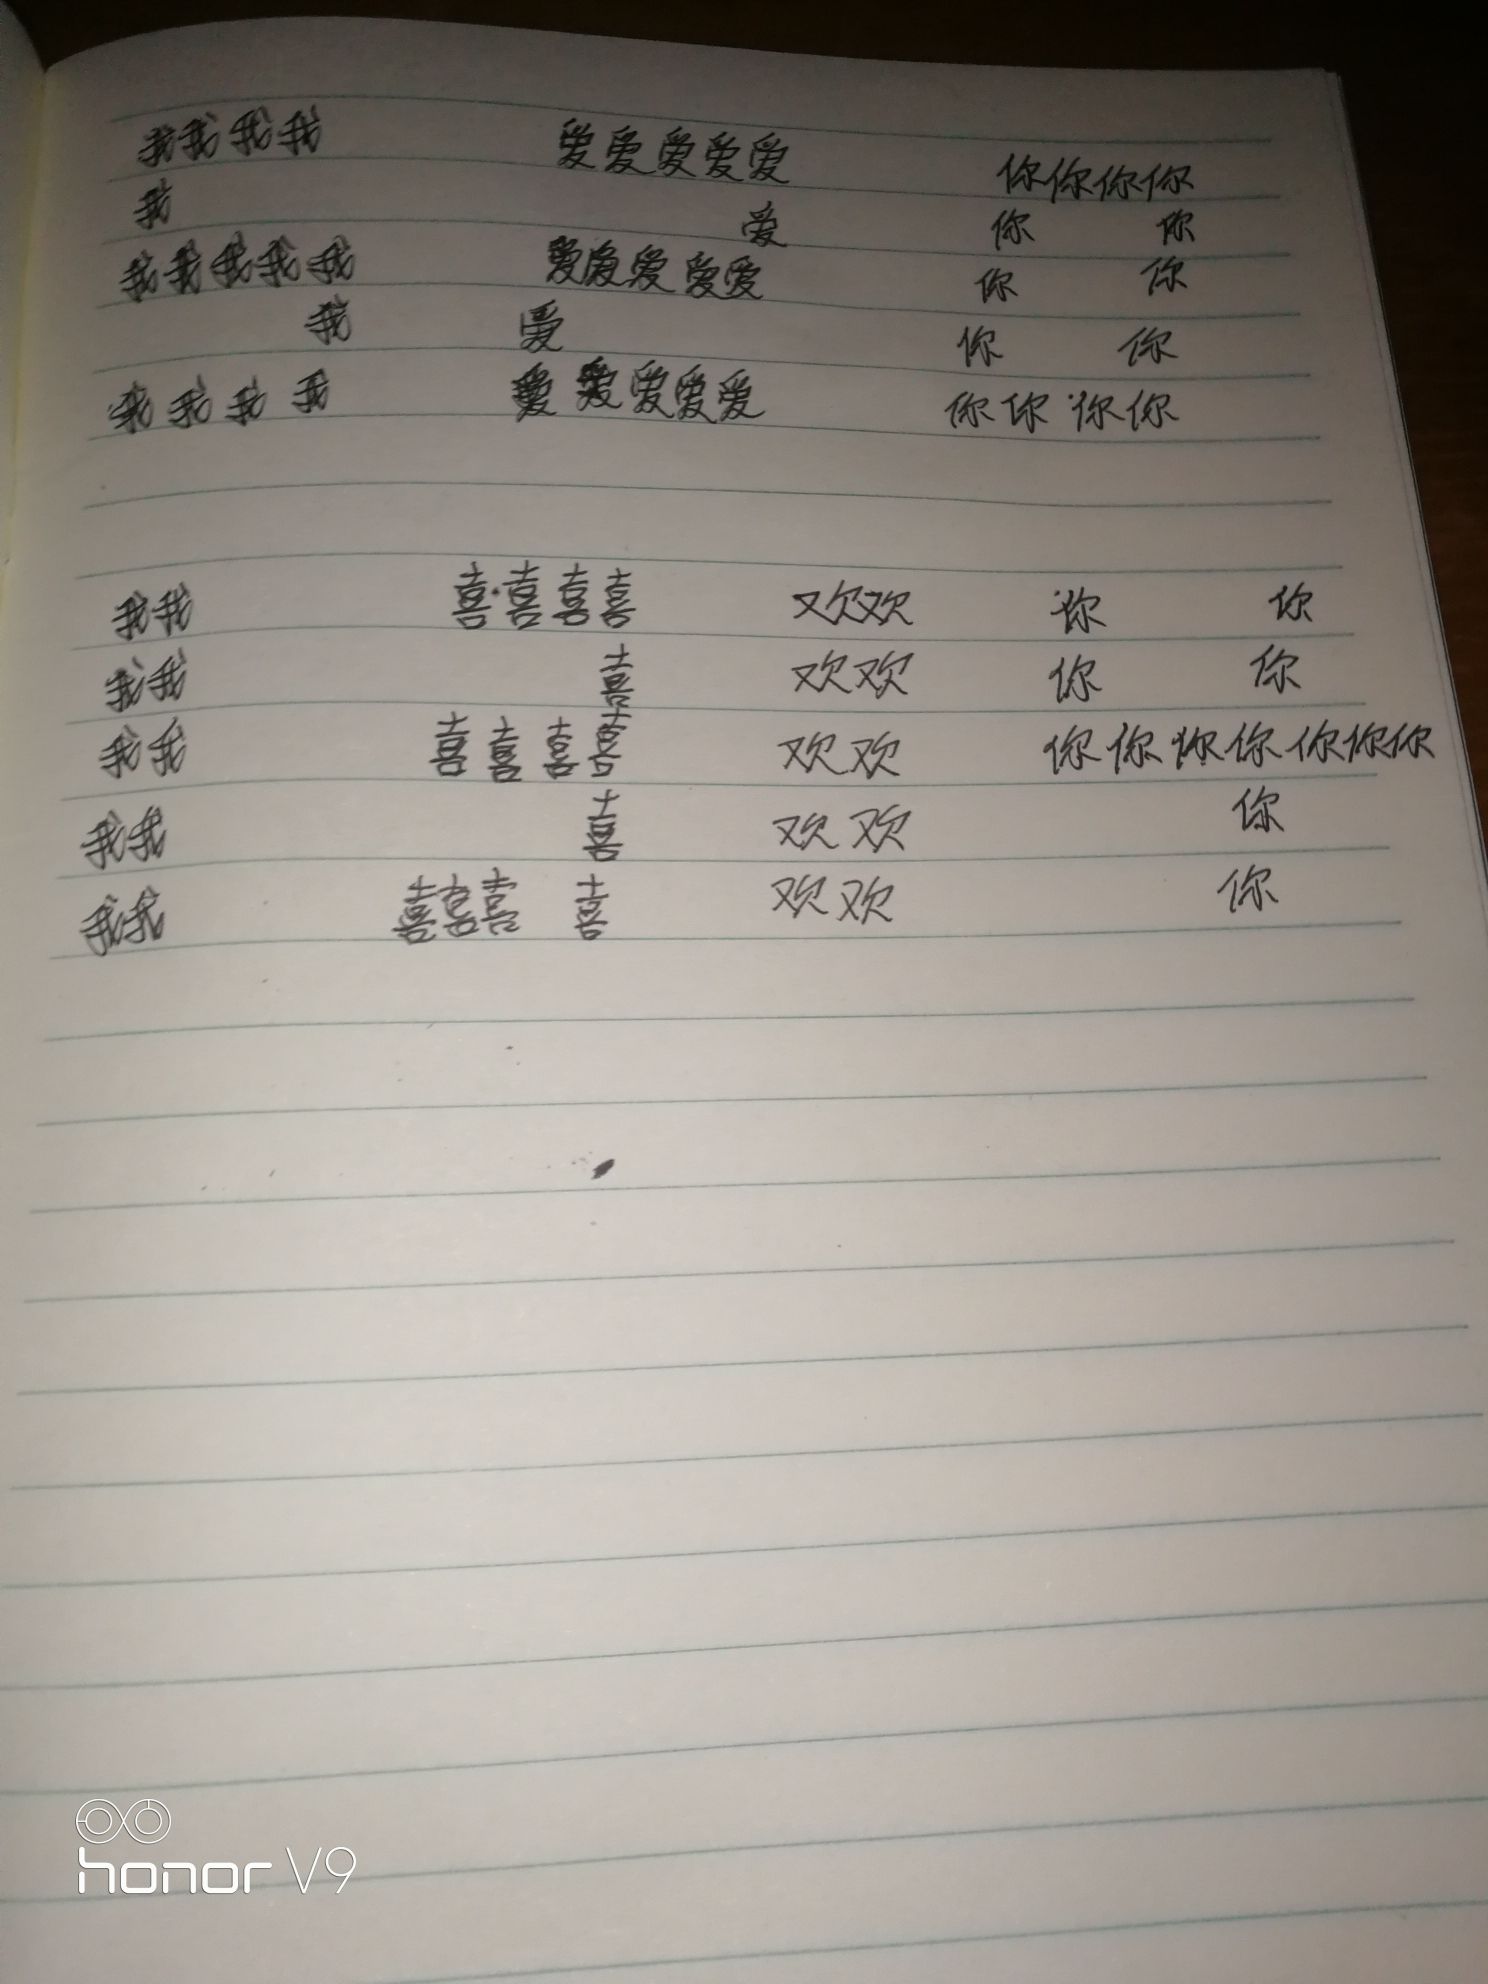 我我我我 爱爱爱爱爱 你你你你
我 爱 你 你
我我我我我 爱爱爱爱爱 你 你
我 爱 你 你
我我我我 爱爱爱爱爱 你你你你
我我 喜喜喜喜 欢欢 你 你
我我 喜 欢欢 你 你
我我 喜喜喜喜 欢欢 你你你你你你你
我我 喜 欢欢 你
我我 喜喜喜 喜 欢欢 你
honor V9